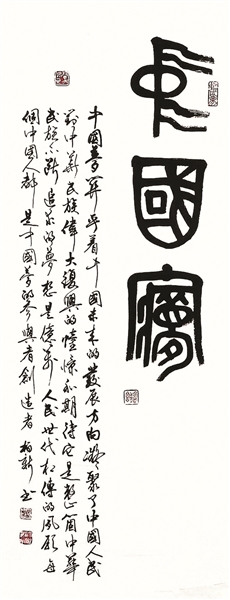 中國夢
中國夢關乎着中國未來的發展方向凝聚了中國人民
對中華民族偉大復興的憧憬和期待它是整個中華
民族不斷追求的夢想是億萬人民世代相傳的夙願每
個中國人都是中國夢的參與者創造者 新书